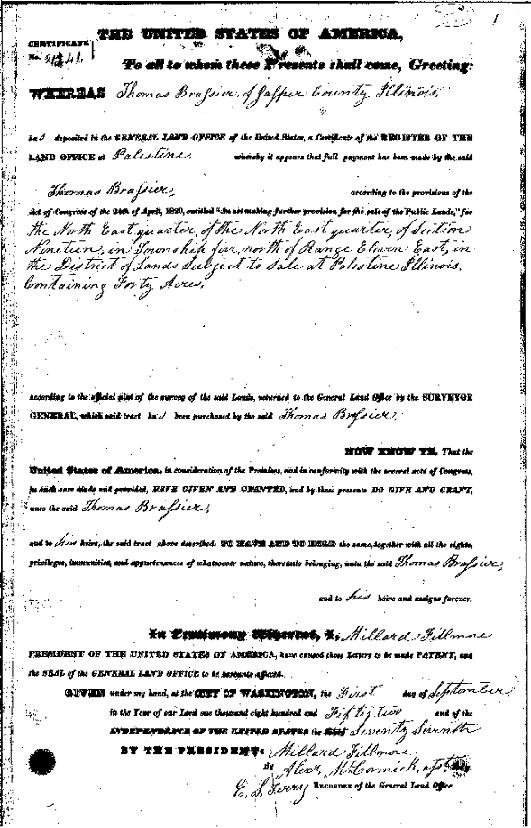 1
THE UNITED STATES OF AMERICA,
CERTIFICATE
No.
To all to whom these Presents shall come, Greeting:
WHEREAS Thomas Brassier, of Jasper County Illinois,
had deposited in the GENERAL LAND OFFICE of the United States, a Certificate of the REGISTER OF THE
LAND OFFICE at Palestine whereby it appears that full payment has been made by the said
Thomas Brassier, according to the provisions of the
Act of Congress of the 24th of April, 1820, entitled "An act making further provision for the sale of the Public Lands," for
the North East quarter, of the North East quarter, of Section
Nineteen, in Township five, north of Range Eleven East, in
the District of Lands Subject to Sale at Palestine Illinois,
Containing Forty Acres,
according to the official plat of the survey of the said Lands, returned to the General Land Office by the SURVEYOR
GENERAL, which said tract has been purchased by the said Thomas Brassier,
NOW KNOW YE, That the
United States of America, in consideration of the Premises, and in conformity with the several acts of Congress,
in such case made and provided, HAVE GIVEN AND GRANTED, and by these presents DO GIVE AND GRANT,
unto the said Thomas Brassier,
and to his heirs, the said tract above described: TO HAVE AND TO HOLD the same, together with all the rights,
privileges, immunities, and appurtenances of whatsoever nature, thereunto belonging, unto the said Thomas Brassier,
and to his heirs and assigns forever.
In Testimony Whereof, I, Millard Fillmore
PRESIDENT OF THE UNITED STATES OF AMERICA, have caused these Letters to be made PATENT, and
the SEAL of the GENERAL LAND OFFICE to be hereunto affixed.
GIVEN under my hand, at the CITY OF WASHINGTON, the First day of September
in the Year of our Lord one thousand eight hundred and Fifty two and of the
INDEPENDENCE OF THE UNITED STATES the Seventy Seventh
BY THE PRESIDENT: Millard Fillmore
By Alex. McCormick,
E. S. Terry RECORDER of the General Land Office